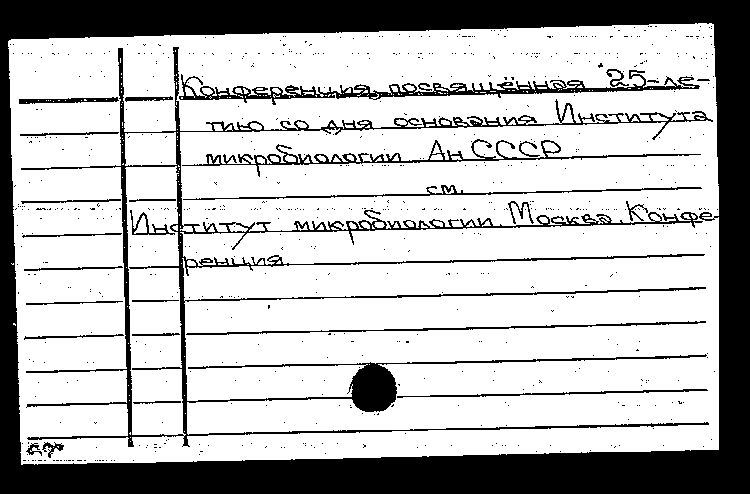 Конференция, посвящённая 25-ле-
тию со дня основания Института
микробиологии Ан СССР
см.
Институт микробиологии. Москва. Конфе-
ренция.